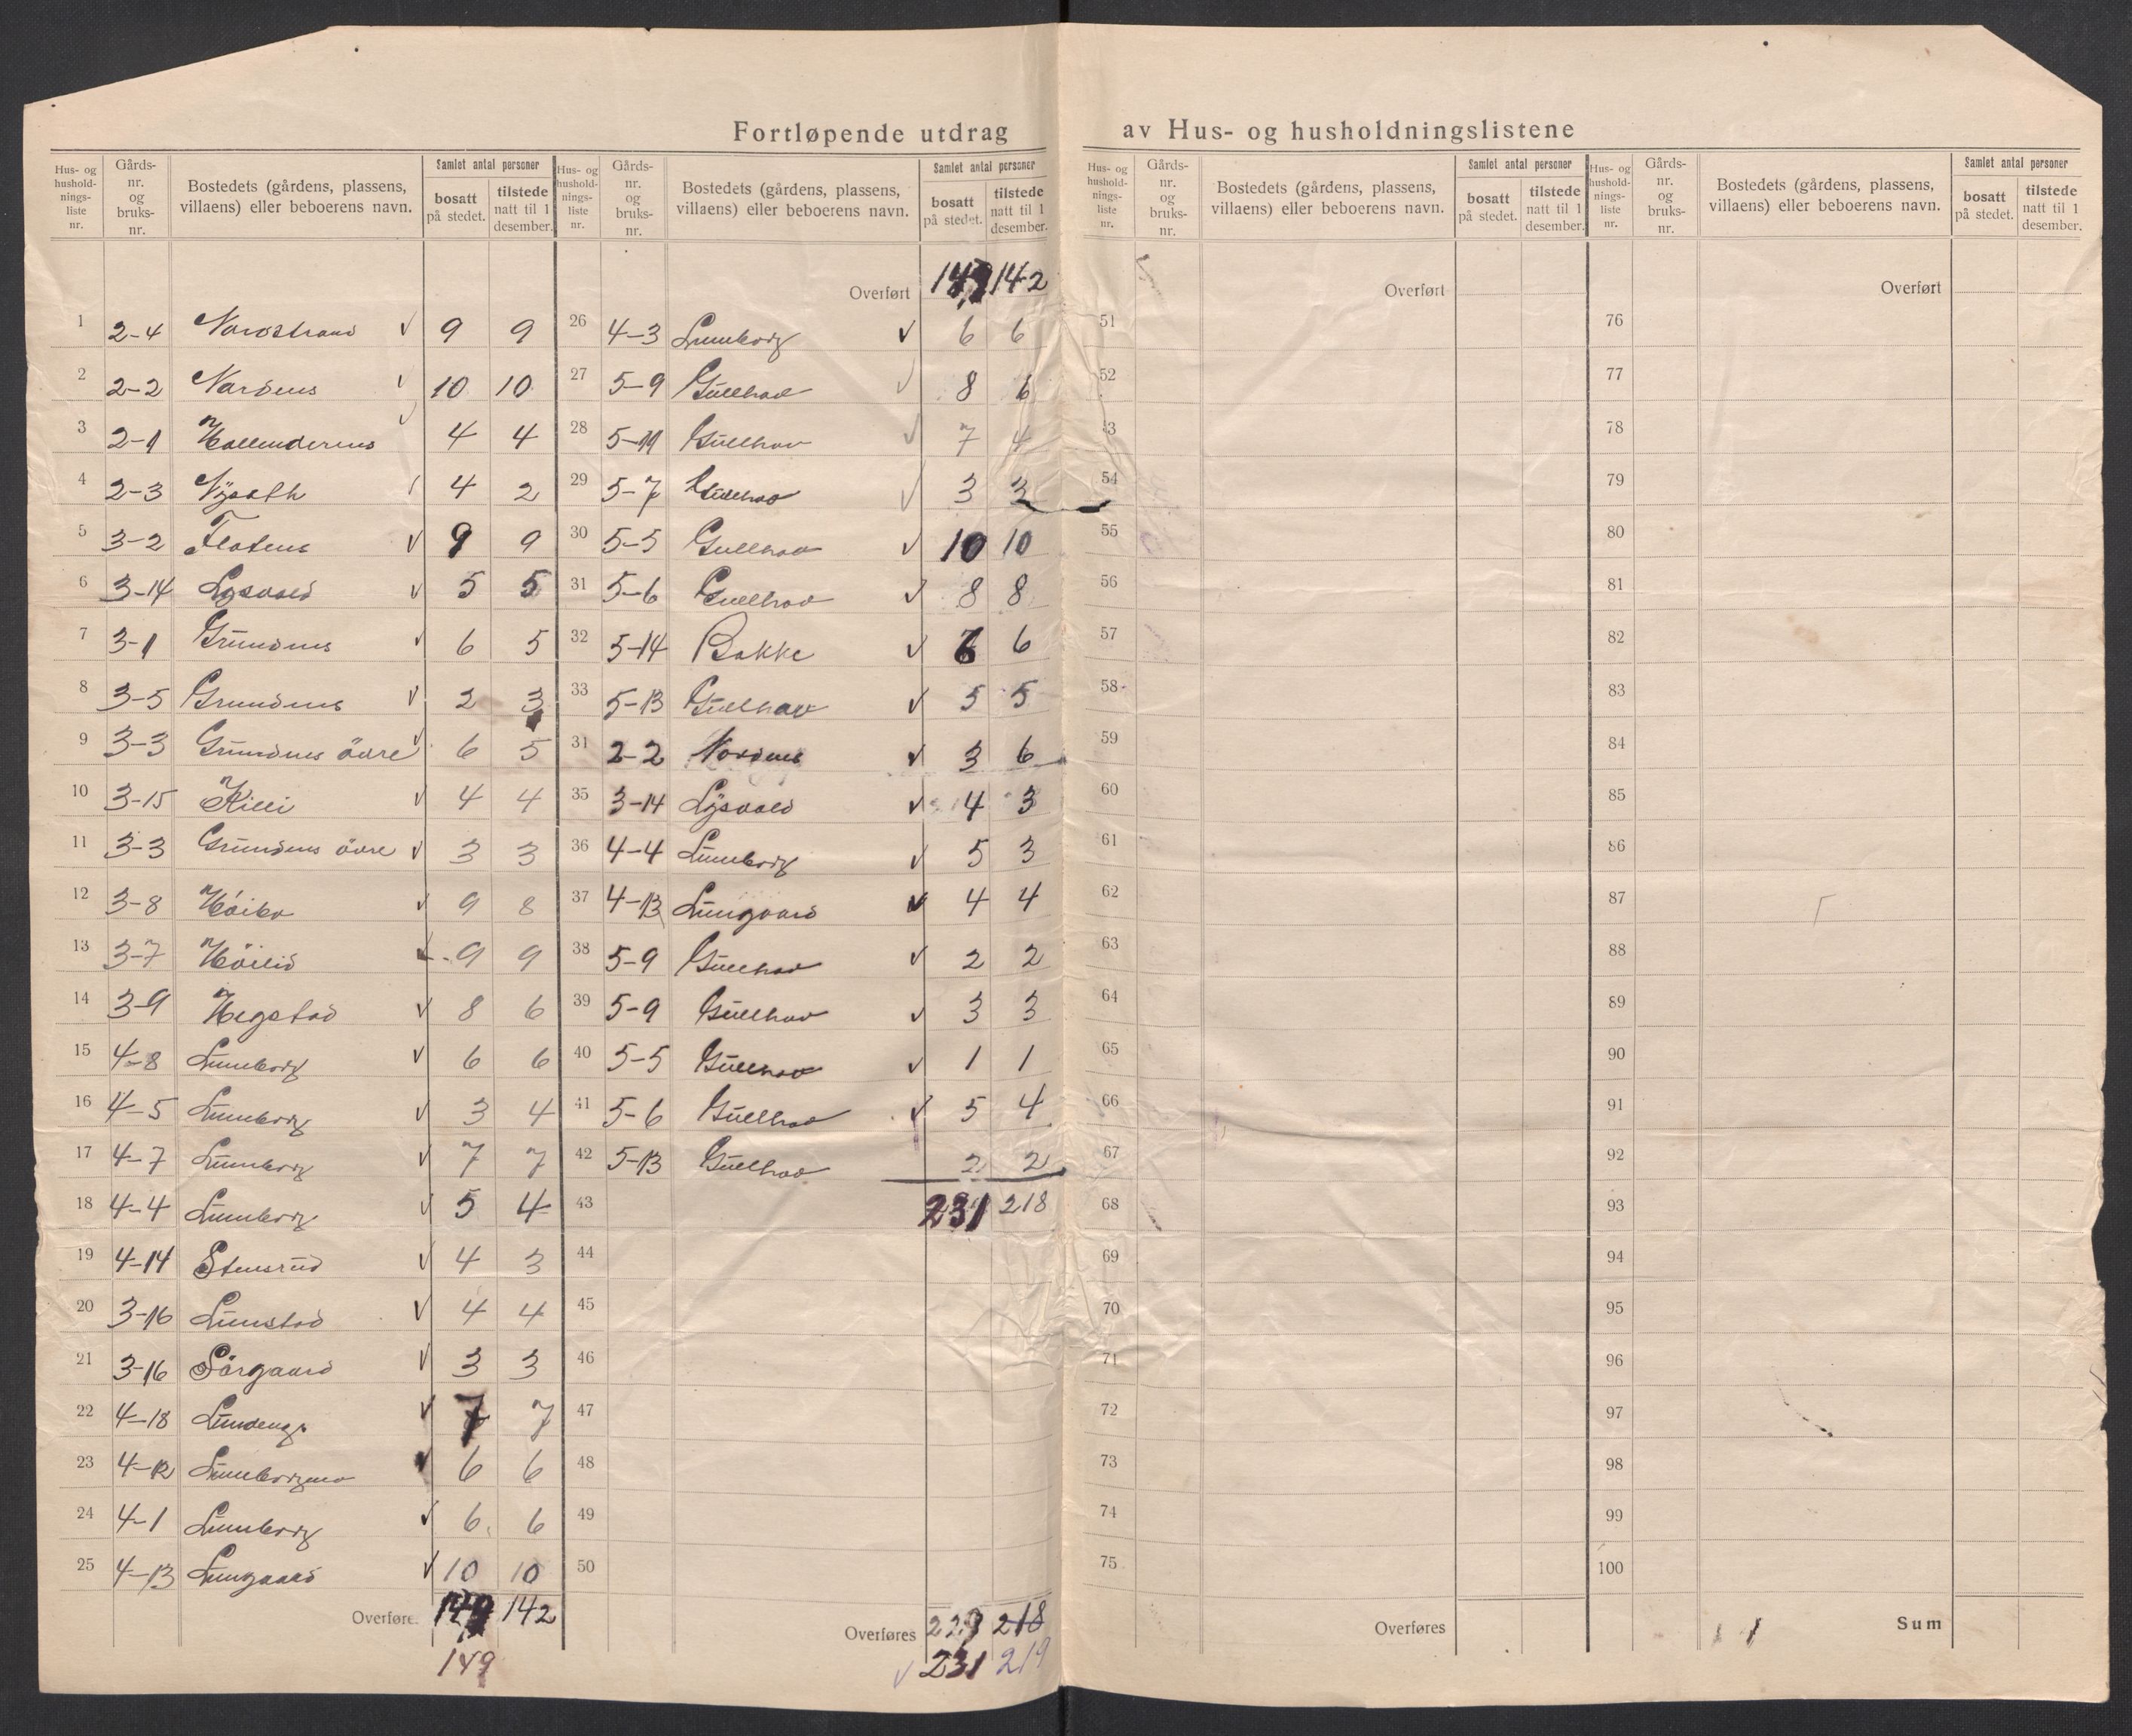 Fortløpende utdrag av Hus- og husholdningslistene
Hus- og husholdnings-liste nr. Gårds-nr. og bruks-nr. Bostedets (gårdens, plassens, villaens) eller beboerens navn. Samlet antal personer bosatt på stedet. tilstede natt til 1 desember.
1 2-4 Nordstrand √ 9 9
2 2-2 Nordens √ 10 10
3 2-1 √ 4 4
4 2-3 √ 4 2
5 3-2 Flatens √ 9 9
6 3-14 Lysvold √ 5 5
7 3-1 Grundens √ 6 5
8 3-5 Grundens √ 2 3
9 3-3 Grundens övre √ 6 5
10 3-15 Killi √ 4 4
11 3-3 Grundens övre √ 3 3
12 3-8 Höibo √ 9 8
13 3-7 Höilid √ 9 9
14 3-9 Hegstad √ 8 6
15 4-8 Lunnborg √ 6 6
16 4-5 Lunnborg √ 3 4
17 4-7 Lunnborg √ 7 7
18 4-4 Lunnborg √ 5 4
19 4-14 Stensrud √ 4 3
20 3-16 Lunstad √ 4 4
21 3-16 Sörgaard √ 3 3
22 4-18 Lundengs √ 7 7
23 4-12 Lunnborgmo √ 6 6
24 4-1 Lunnborg √ 6 6
25 4-13 Lungaard √ 10 10
Overføres 149 142
149
Hus- og husholdnings-liste nr. Gårds-nr. og bruks-nr. Bostedets (gårdens, plassens, villaens) eller beboerens navn. Samlet antal personer bosatt på stedet. tilstede natt til 1 desember.
Overført 149 142
26 4-3 Lunnborg √ 6 6
27 5-9 Gullhav √ 8 6
28 5-11 Gullhav √ 7 4
29 5-7 Gullhav √ 3 3
30 5-5 Gullhav √ 10 10
31 5-6 Gullhav √ 8 8
32 5-14 Bakke √ 6 6
33 5-13 Gullhav √ 5 5
31 2-2 Nordens √ 3 6
35 3-14 Lysvold √ 4 3
36 4-4 Lunnborg √ 5 3
37 4-13 Lungaard √ 4 4
38 5-9 Gullhav √ 2 2
39 5-9 Gullhav √ 3 3
40 5-5 Gullhav √ 1 1
41 5-6 Gullhav √ 5 4
42 5-13 Gullhav 2 2
43 231 218
44
45
46
47
48
49
50
Overføres 229 218
√ 231 219
Hus- og husholdnings-liste nr. Gårds-nr. og bruks-nr. Bostedets (gårdens, plassens, villaens) eller beboerens navn. Samlet antal personer bosatt på stedet. tilstede natt til 1 desember.
Overført
51
52
53
54
55
56
57
58
59
60
61
62
63
64
65
66
67
68
69
70
71
72
73
74
75
Overføres
Hus- og husholdnings-liste nr. Gårds-nr. og bruks-nr. Bostedets (gårdens, plassens, villaens) eller beboerens navn. Samlet antal personer bosatt på stedet. tilstede natt til 1 desember.
Overført
76
77
78
79
80
81
82
83
84
85
86
87
88
89
90
91
92
93
94
95
96
97
98
99
100
Sum